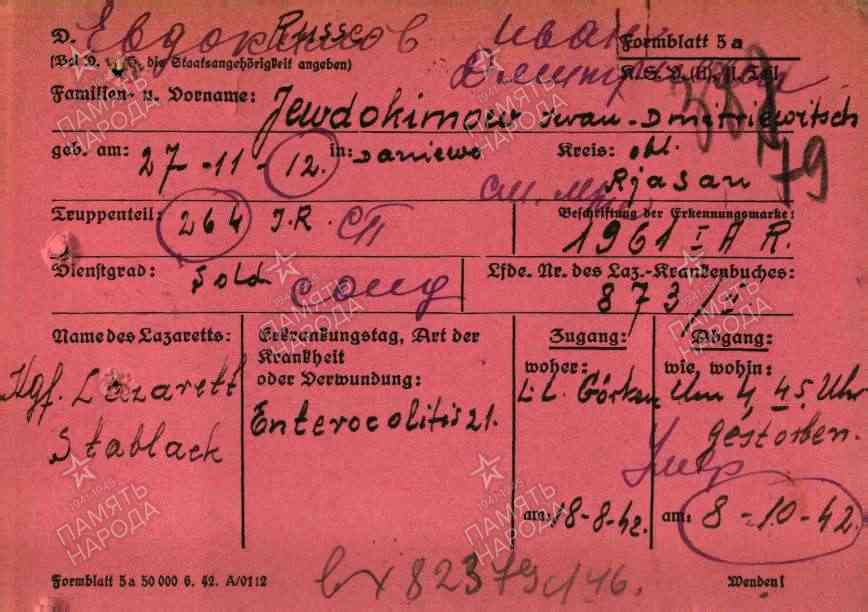 D. Russe Евдокимов Иван
(Bei D. u. G. die Staatsangehörigkeit angeben)
Formblatt 5a
Familien- u. Vorname: Jewdokimow Iwan-Dmitriewitsch
geb. am: 27-11-12. in: Daniewo Kreis: obl. Rjasan
Truppenteil: 264 J.R. СП
Beschriftung der Erkennungsmarke: 1961 I A R.
Dienstgrad: Sold. солд
Lfde. Nr. des Laz.-Krankenbuches: 873/
Name des Lazaretts:
Kgf. Lazarett
Stablack
Erkrankungstag, Art der
Krankheit
oder Verwundung:
Enterocolitis 21.
Zugang:
woher:
Görken
am: 18-8-42.
Abgang:
wie, wohin:
Um 4 45 Uhr
gestorben.
Умер
am: 8-10-42.
79
вх 82379с/46.
Formblatt 5a 50 000 6. 42. A/0112
Wenden!
1941-1945
ПАМЯТЬ
НАРОДА